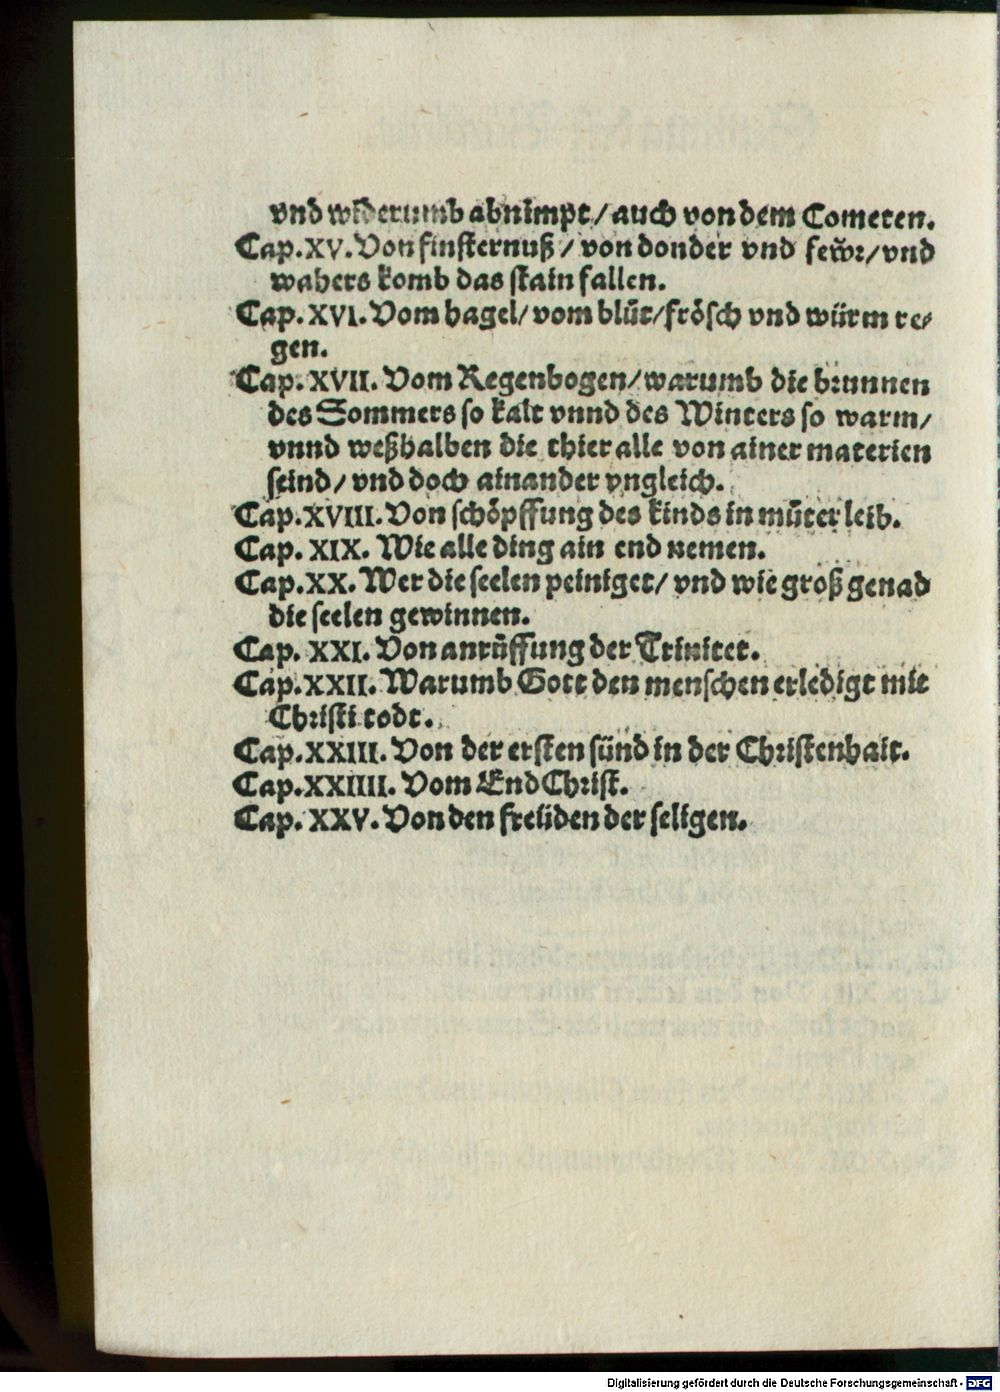 vnd widerumb abnimpt/auch von dem Cometen.
Cap.XV. Von finsternuß/ von donder vnd fewr/vnd
wahers komb das stain fallen.
Cap. XVI. Vom hagel/ vom blůt/frösch vnd würm re⸗
gen.
Cap. XVII. Vom Regenbogen/warumb die brunnen
des Sommers so kalt vnnd des Winters so warm/
vnnd weßhalben die thier alle von ainer materien
seind/ vnd doch ainander vngleich.
Cap.XVIII. Von schöpffung des kinds in můter leib.
Cap. XIX. Wie alle ding ain end nemen.
Cap.XX. Wer die seelen peiniget/ vnd wie groß genad
die seelen gewinnen.
Cap. XXI. Von anrůffung der Trinitet.
Cap.XXII. Warumb Gott den menschen erledigt mit
Christi todt.
Cap.XXIII. Von der ersten sünd in der Christenhait.
Cap.XXIIII. Vom EndChrist.
Cap. XXV. Von den freüden der seligen.
Digitalisierung gefördert durch die Deutsche Forschungsgemeinschaft - DFG